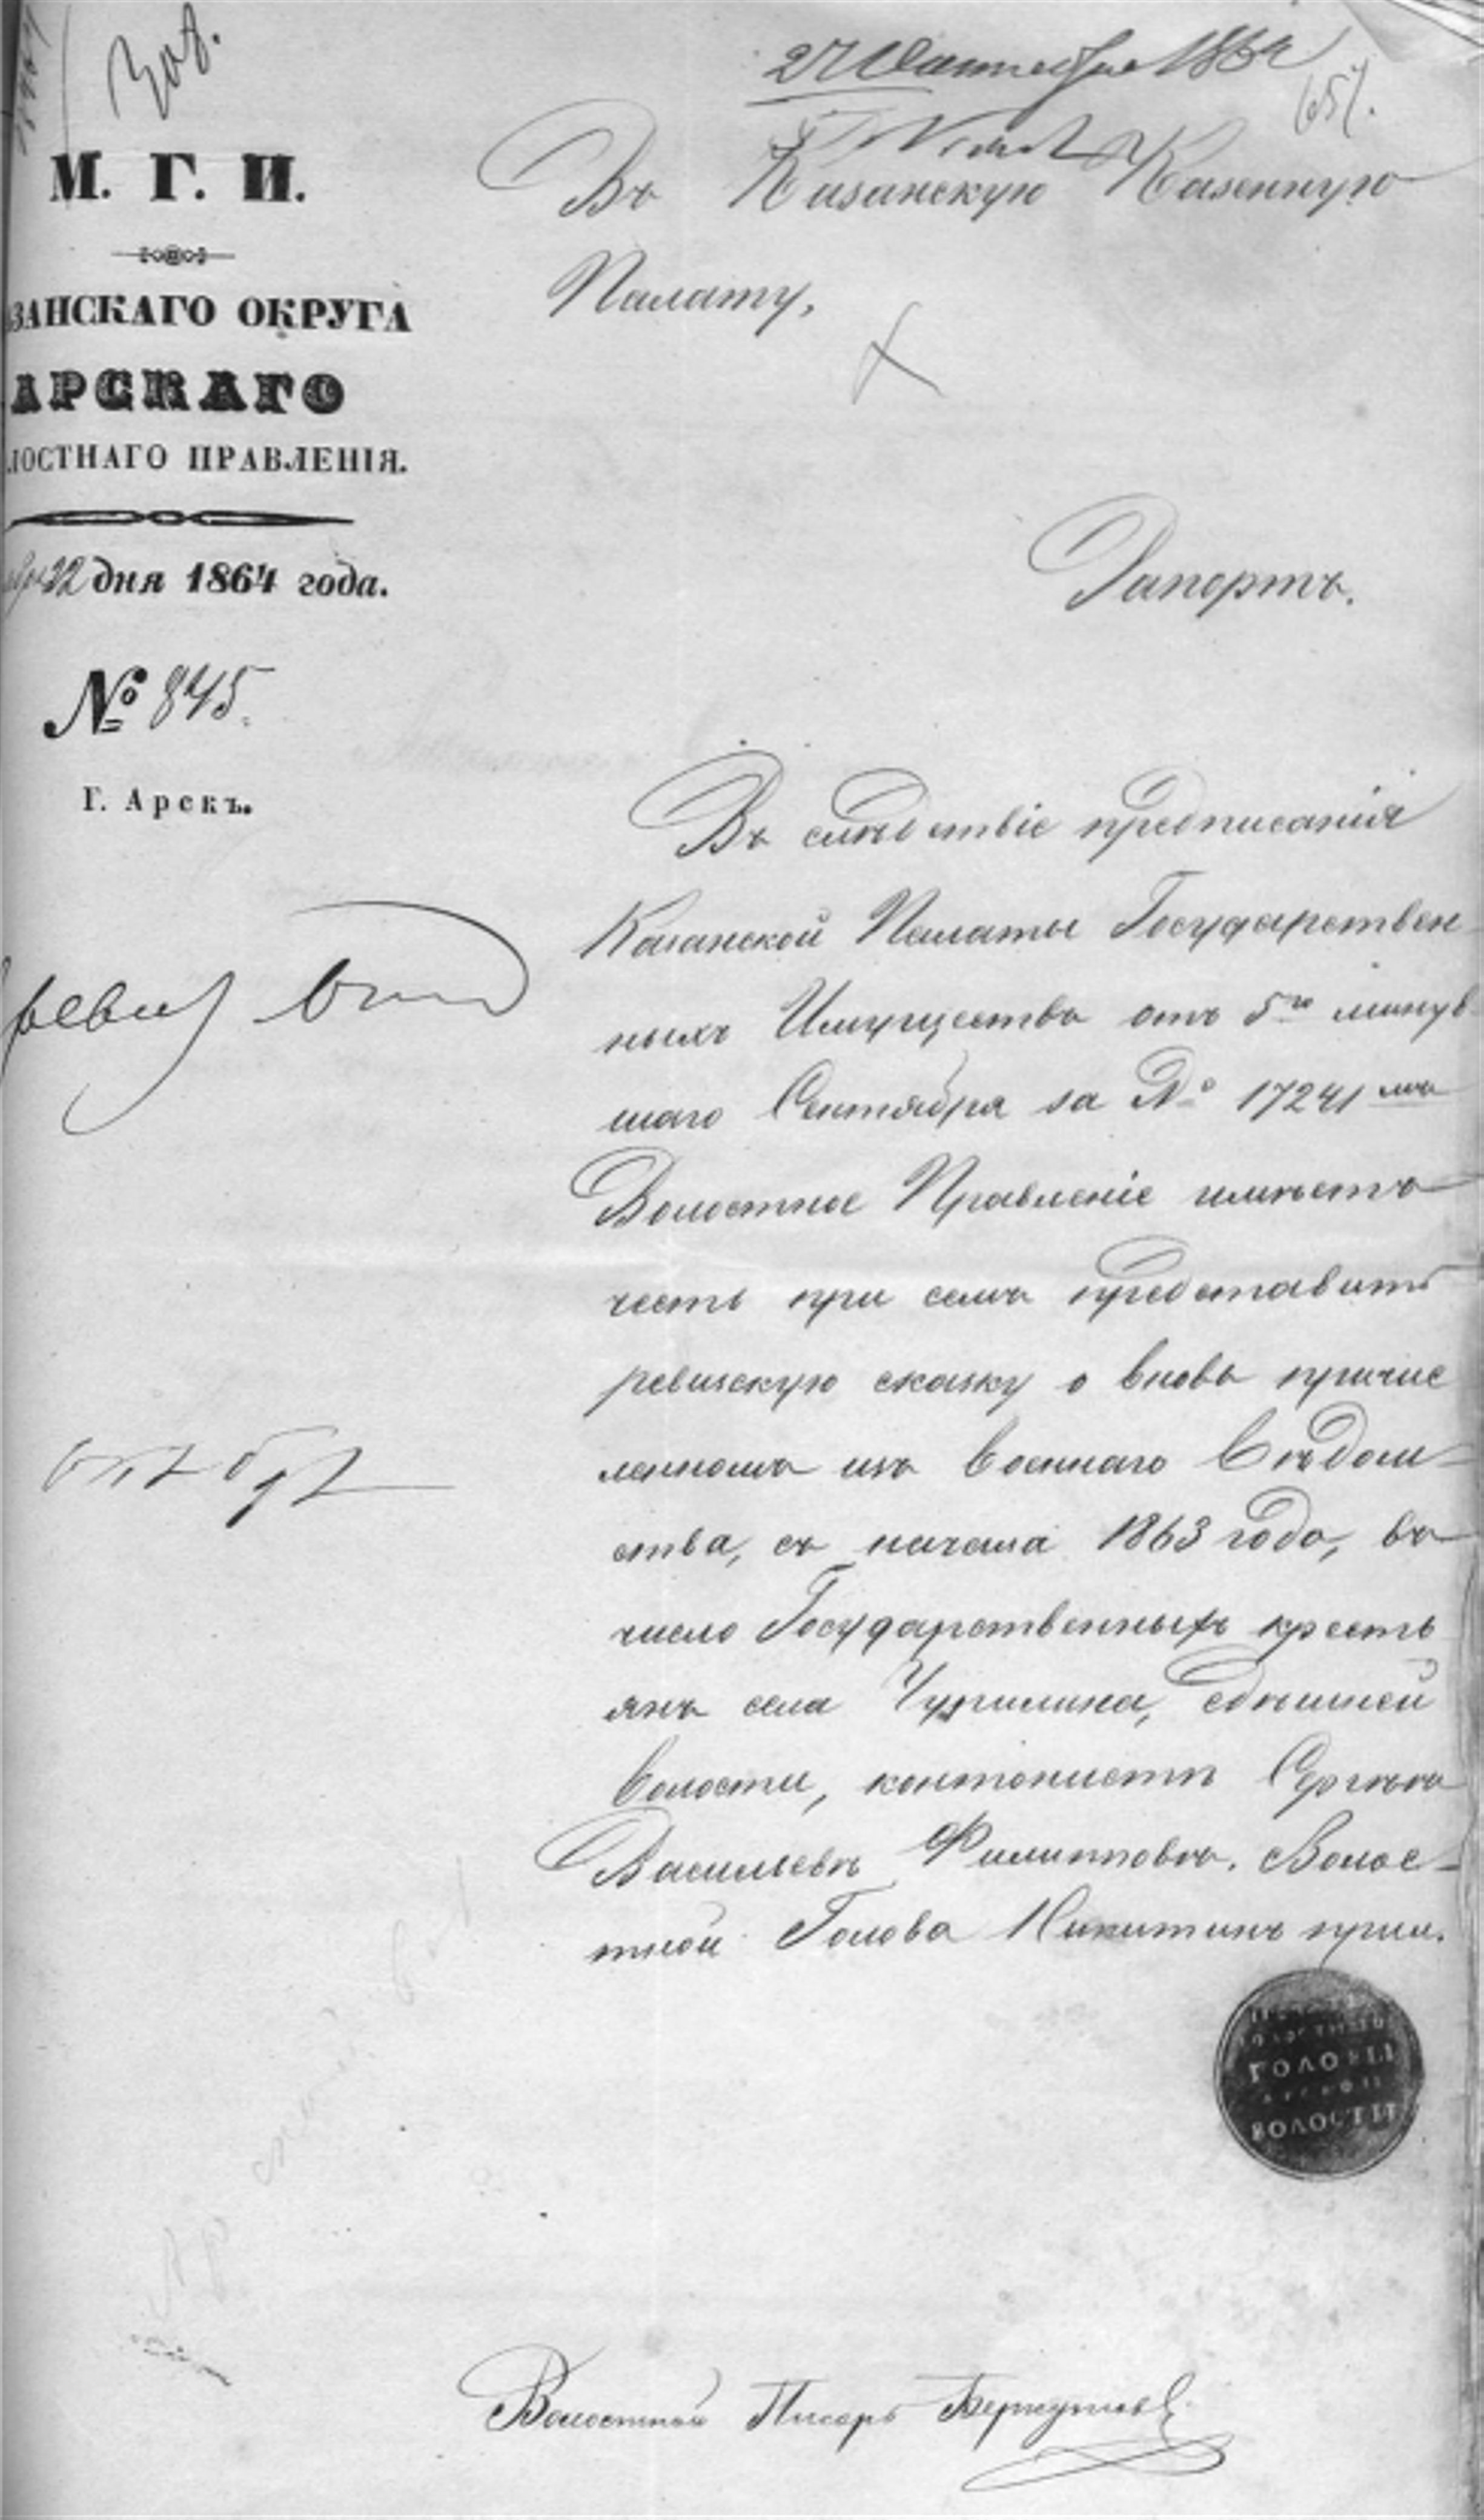 Заб.
27 Октября 1864
651.
М. Г. И.
ЗАНСКАГО ОКРУГА
АРСКАГО
ЛОСТНАГО ПРАВЛЕНІЯ.
22 дня 1864 года.
№ 845.
Г. Арскъ.
Въ Казанскую Казенную
Палату,
Рапортъ.
Въ слѣдствіе предписанія
Казанской Палаты Государствен
ныхъ Имуществъ отъ 5го минув
шаго Сентября за № 17241мъ
Волостное Правленіе имѣетъ
честь при семъ представить
ревизскую сказку о вновь причис
ленномъ изъ военнаго вѣдом-
ства, съ начала 1863 года, въ
число Государственныхъ кресть
янъ села Чурилина, здѣшней
волости, контонистѣ Сергѣѣ
Васильевѣ Филипповѣ. Волос-
тной Голова Никитинъ прил.
ГОЛОВЫ
ВОЛОСТИ
Волостной Писарь